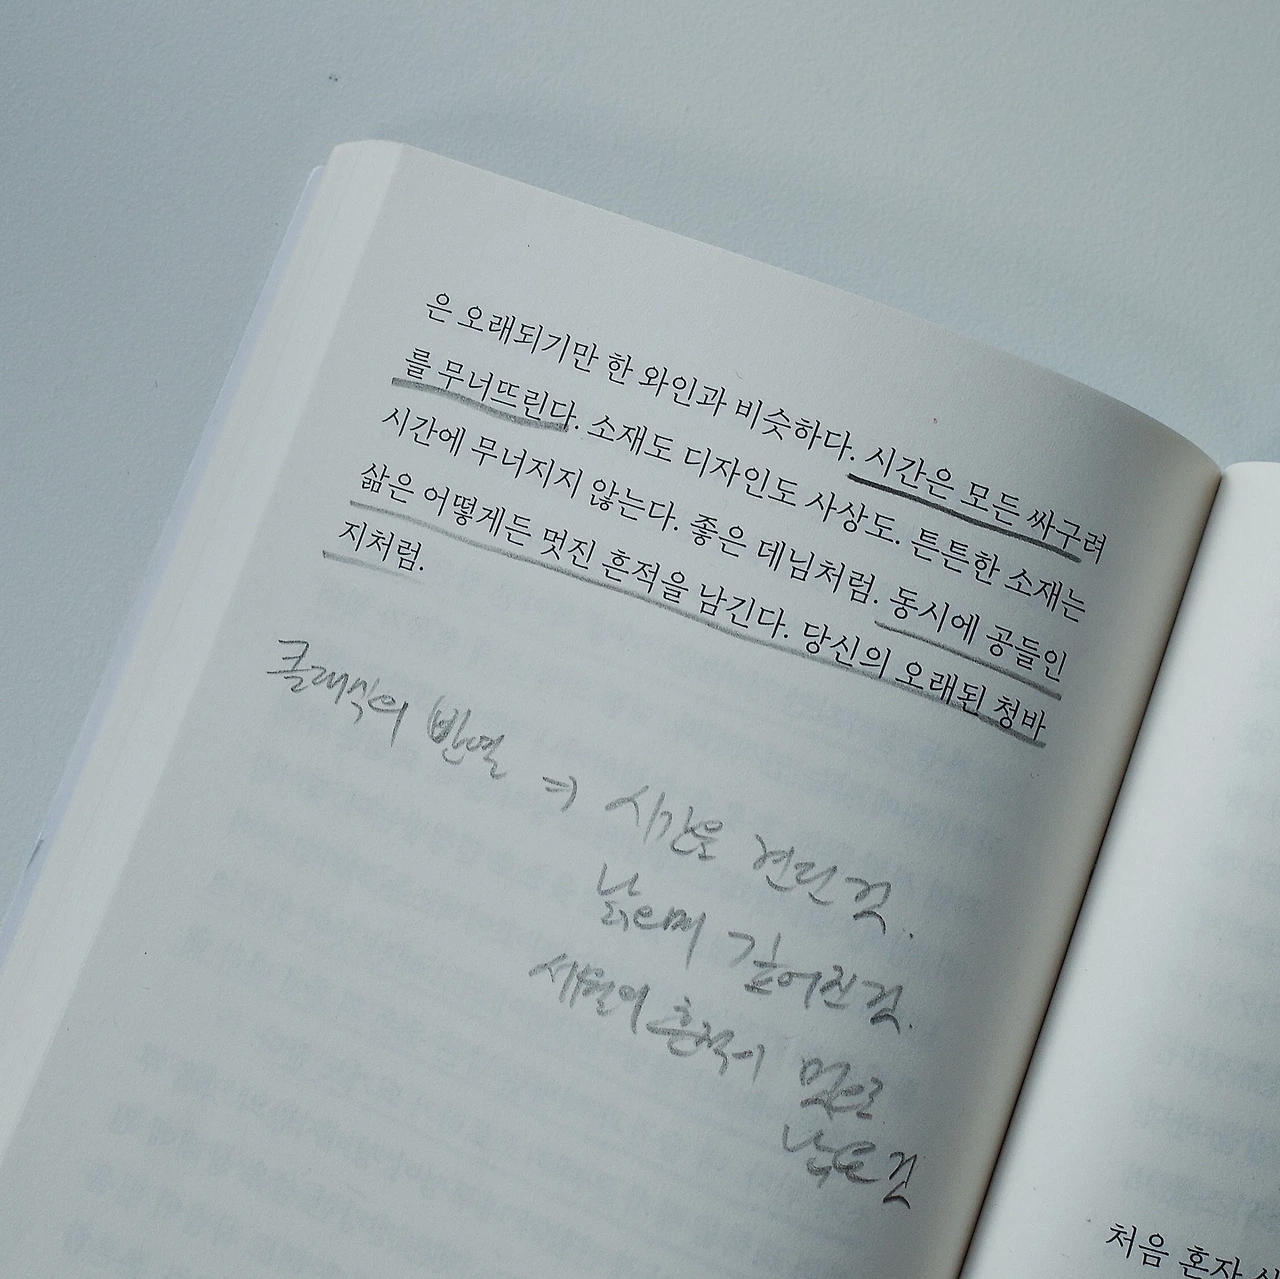 은 오래되기만 한 와인과 비슷하다. 시간은 모든 싸구려
를 무너뜨린다. 소재도 디자인도 사상도. 튼튼한 소재는
시간에 무너지지 않는다. 좋은 데님처럼. 동시에 공들인
삶은 어떻게든 멋진 흔적을 남긴다. 당신의 오래된 청바
지처럼.
클래식의 반열 => 시간을 견딘 것.
낡으며 깊어진 것.
세월의 흔적이 멋으로
남는 것
처음 혼자